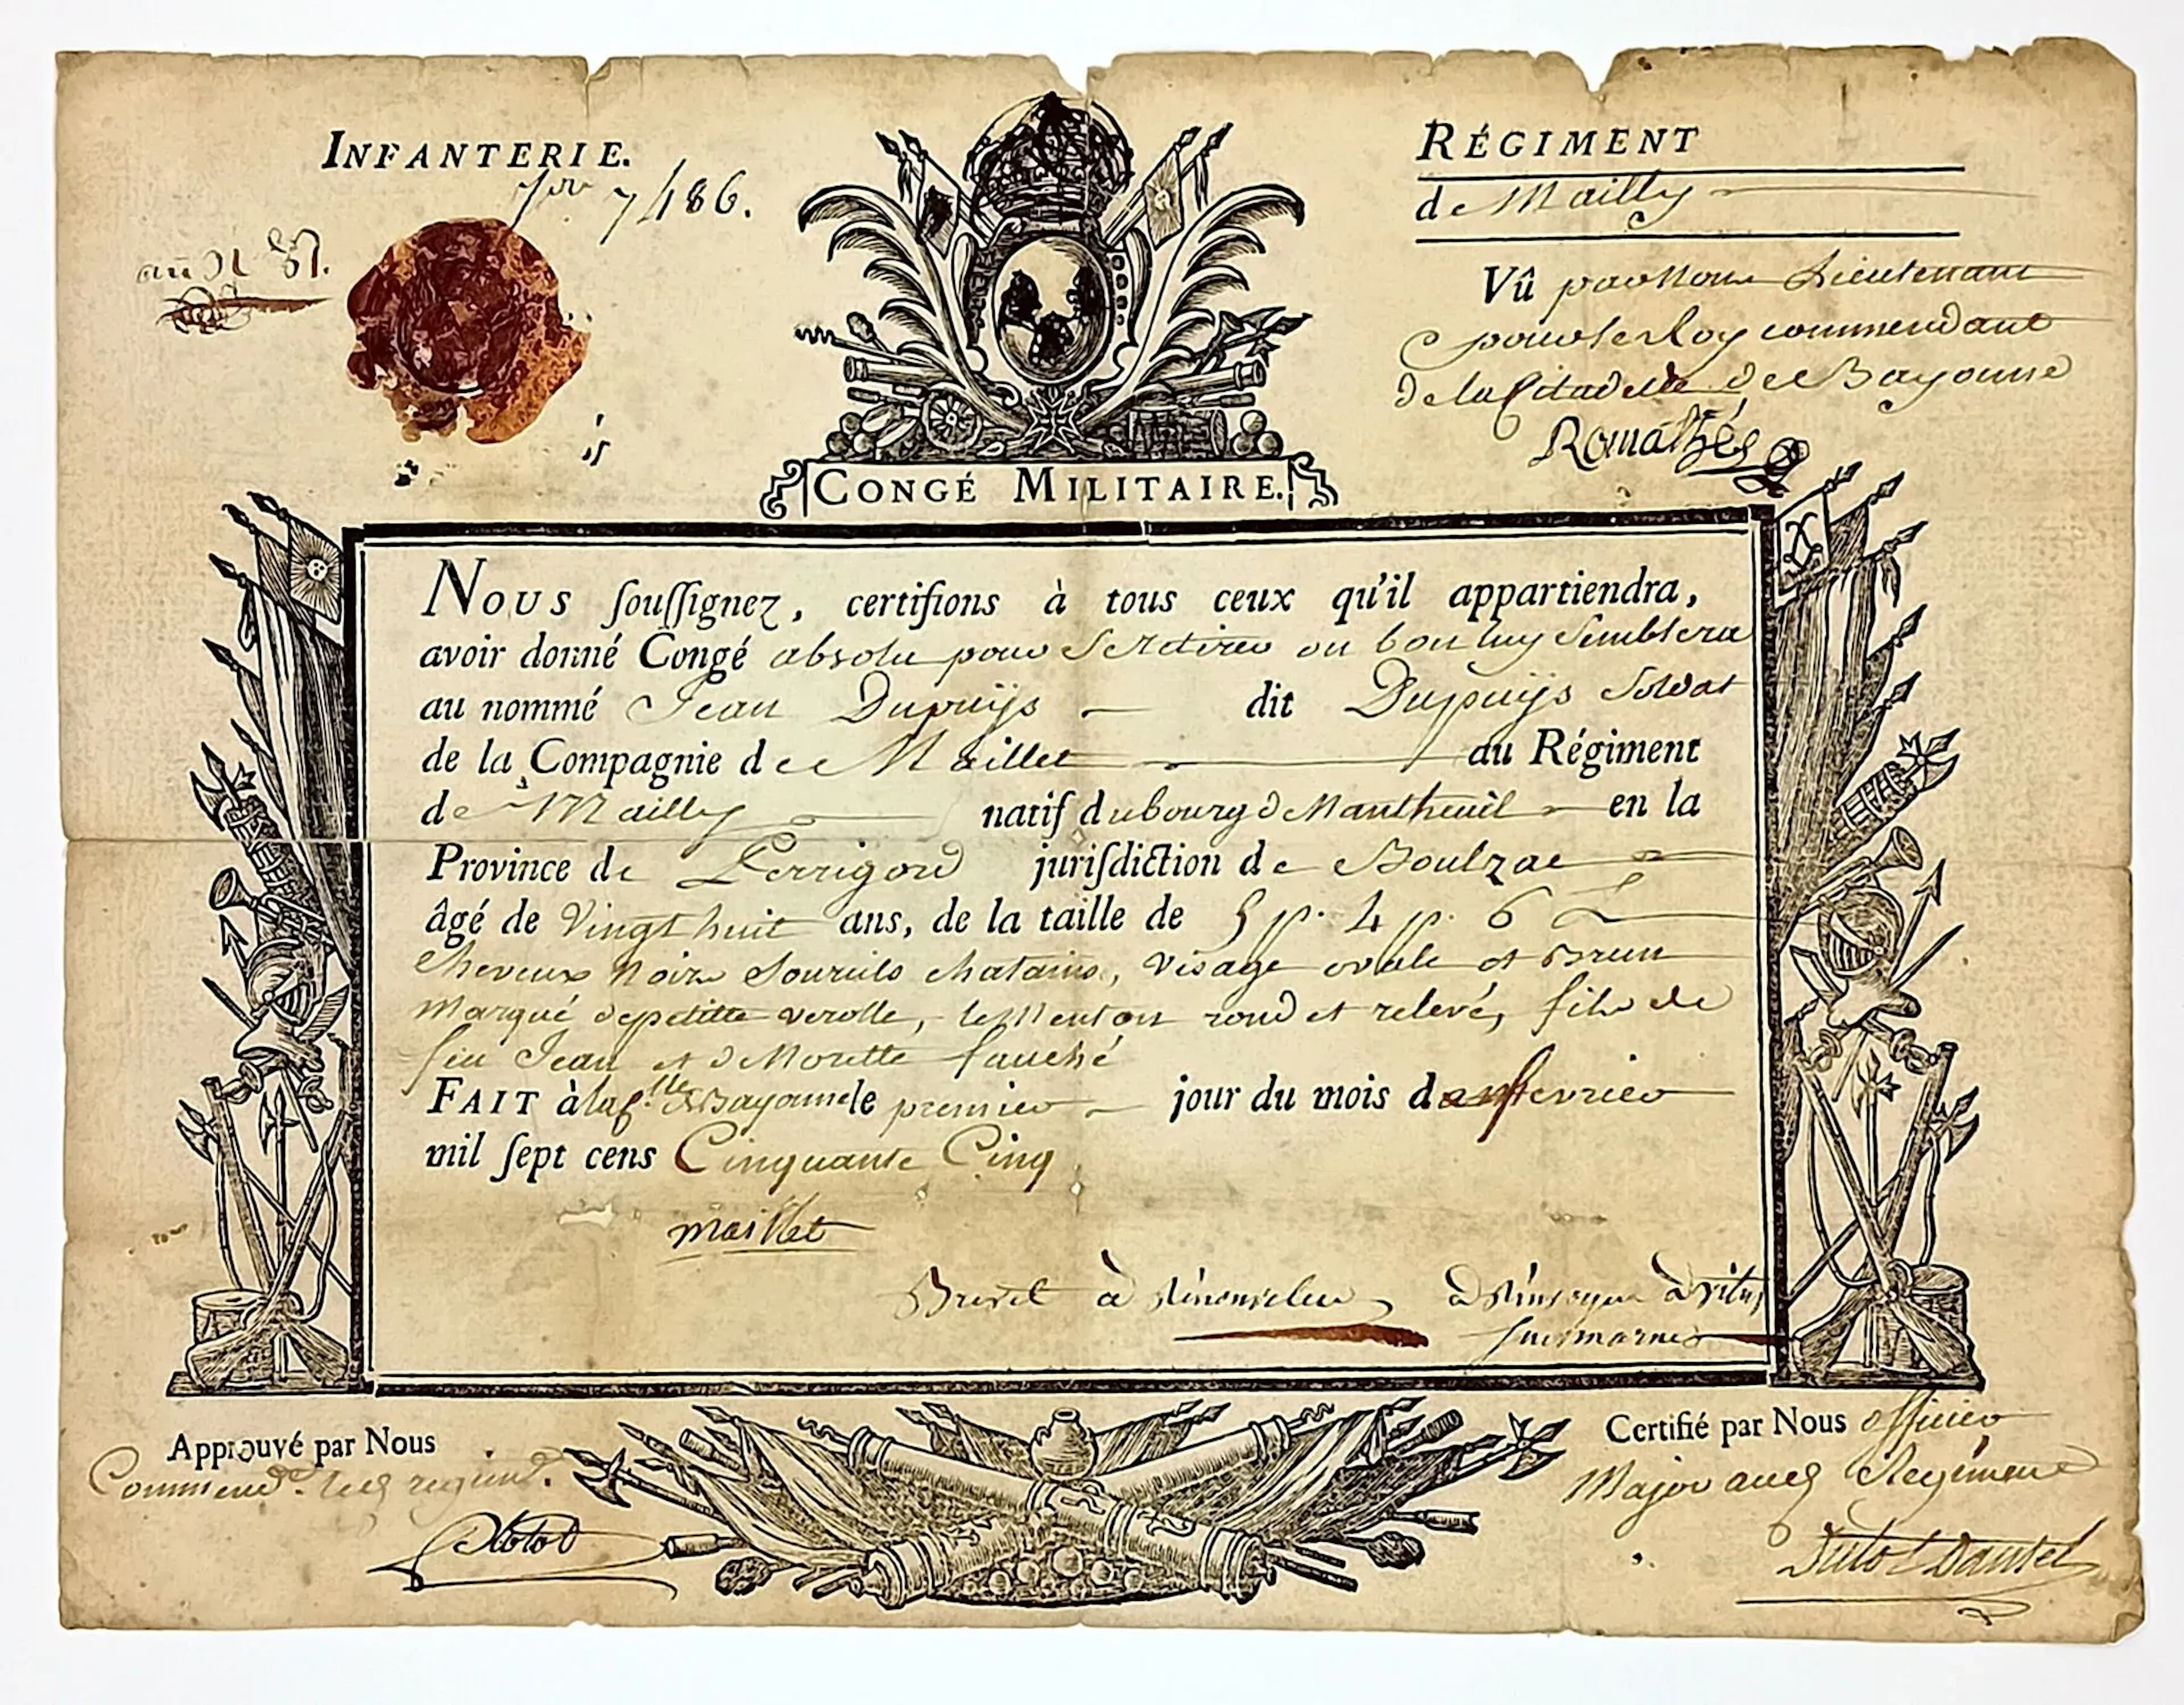 INFANTERIE.
7486.
RÉGIMENT
de Mailly
Vû par Nous Lieutenant
pour le Roy commendant
de la Citadelle de Bayonne
CONGÉ MILITAIRE.
NOUS souſſignez, certifions à tous ceux qu'il appartiendra,
avoir donné Congé absolu pour Se Retirer ou bon luy Semblera
au nommé Jean Dupuÿs dit Dupuÿs Soldat
de la Compagnie de Maillet du Régiment
de Mailly natif du bourg de Mantheuil en la
Province de Perrigord juriſdiction de Boulzac
âgé de Vingt huit ans, de la taille de 5 p. 4 p. 6 L
Cheveux Noirs Sourcils chatains, Visage ovale et Brun
Marqué de petitte verolle, le Menton rond et relevé, fils de
feu Jean et de Morette fauché
FAIT à la Bayonne le premier jour du mois de fevrier
mil ſept cens Cinquante Cinq
maillet
Brevet à
Approuvé par Nous
Commend.
Certifié par Nous officier
Major aud Regiment